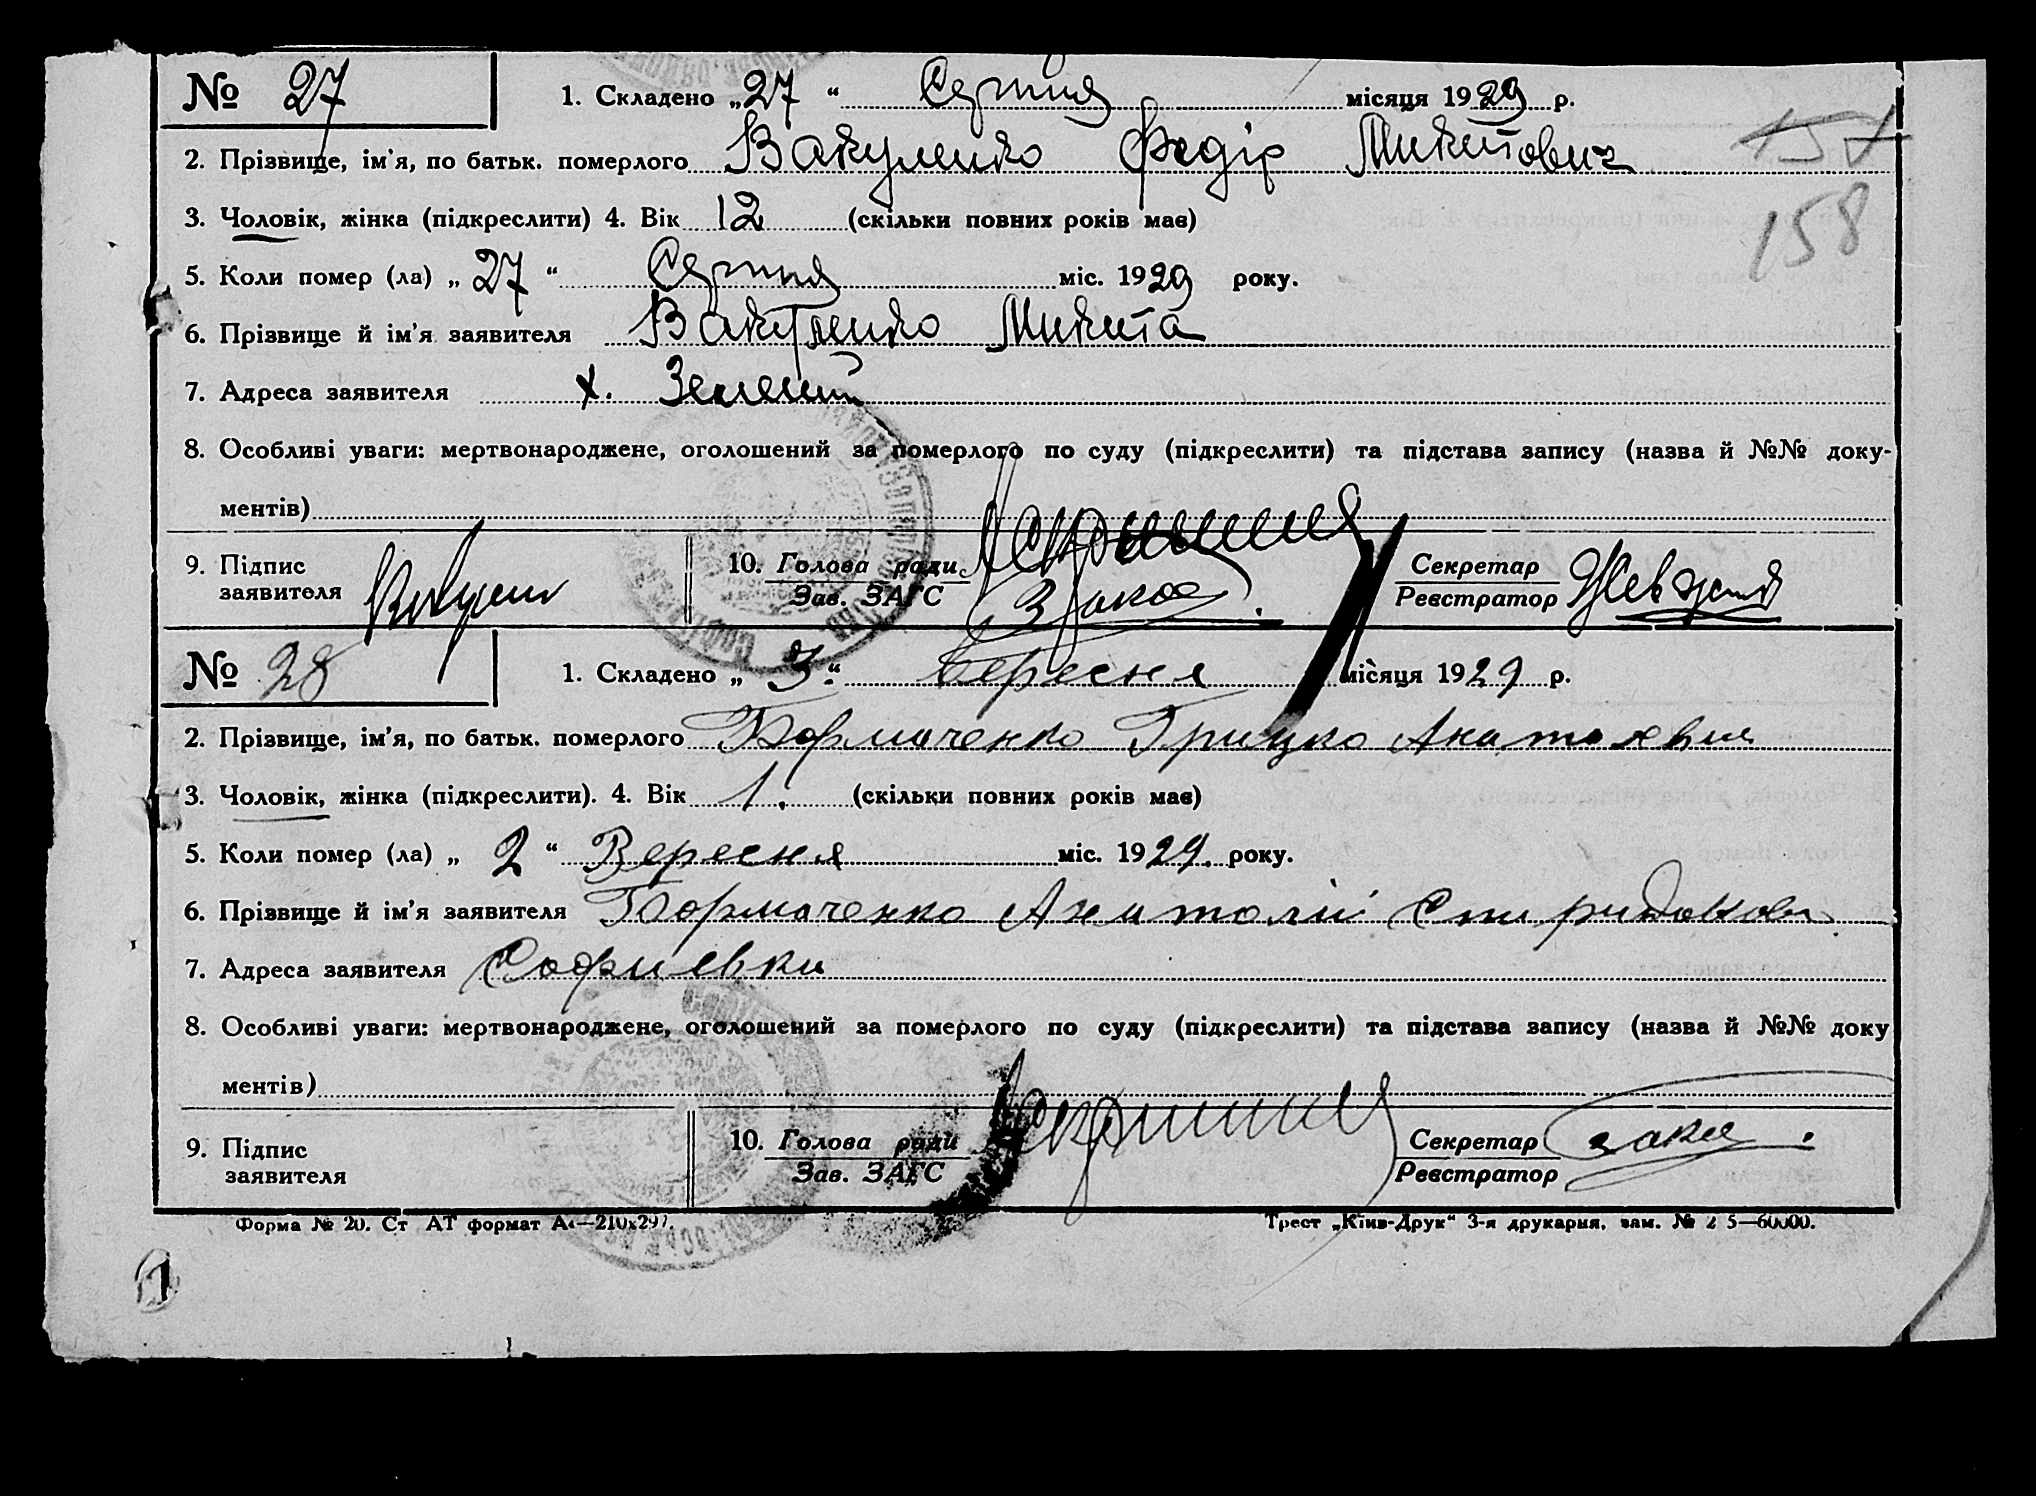 № 27 1. Складено „27“ Серпня місяця 1929 р.
2. Прізвище, ім'я, по батьк. померлого Вакуленко Федір Микитович
157
3. Чоловік, жінка (підкреслити) 4. Вік 12 (скільки повних років має)
158
5. Коли помер (ла) „27“ Серпня міс. 1929 року.
6. Прізвище й ім'я заявителя Вакуленко Микита
7. Адреса заявителя х. Зелений
8. Особливі уваги: мертвонароджене, оголошений за померлого по суду (підкреслити) та підстава запису (назва й №№ доку-
ментів)
9. Підпис заявителя 10. Голова ради Зав. ЗАГС Секретар Реєстратор
№ 28 1. Складено „3“ Вересня місяця 1929 р.
2. Прізвище, ім'я, по батьк. померлого Грицко
3. Чоловік, жінка (підкреслити). 4. Вік 1. (скільки повних років має)
5. Коли помер (ла) „2“ Вересня міс. 1929. року.
6. Прізвище й ім'я заявителя Анатолій
7. Адреса заявителя Софиевка
8. Особливі уваги: мертвонароджене, оголошений за померлого по суду (підкреслити) та підстава запису (назва й №№ доку
ментів)
9. Підпис заявителя 10. Голова ради Зав. ЗАГС Секретар Реєстратор
Форма № 20. Ст АТ формат А4—210х297. Трест „Київ-Друк“ 3-я друкарня, зам. №